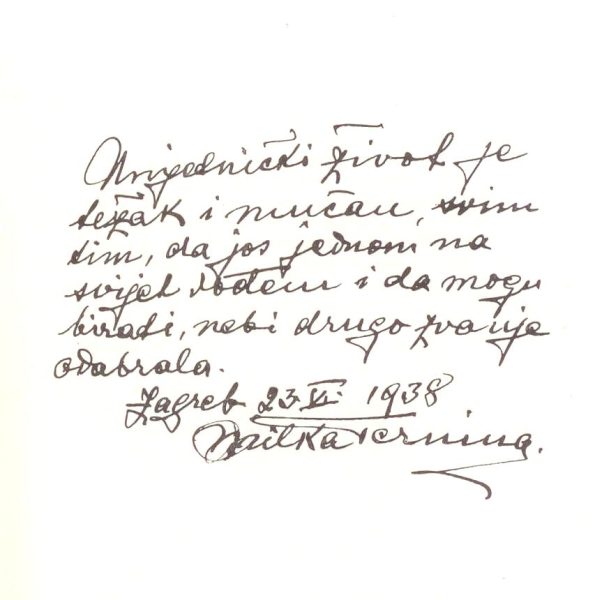 Umjetnički život je
težak i mučan, svim
tim, da jos jednom na
svijet dođem i da mogu
birati, nebi drugo zvanje
odabrala.
Zagreb 23.VI. 1938
Milka Ternina.